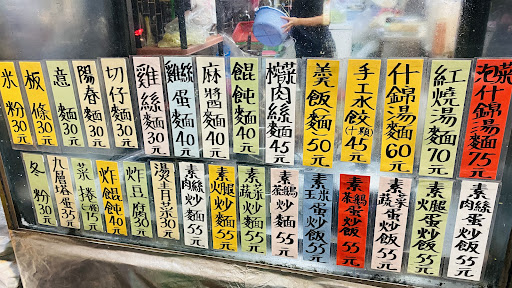 米粉30元
板條30元
意麵30元
陽春麵30元
切仔麵30元
雞絲麵30元
雞絲蛋麵40元
麻醬麵40元
餛飩麵40元
榨菜肉絲麵45元
羹飯麵50元
手工水餃(十顆)45元
什錦湯麵60元
紅燒湯麵70元
泡菜什錦湯麵75元
冬粉30元
九層塔35元
菜捲15元
炸餛飩40元
炸豆腐30元
湯青菜30元
素肉絲炒麵55元
素火腿炒麵55元
素蔬菜炒麵55元
素茶鵝炒麵55元
素玉米蛋炒飯55元
素茶鵝蛋炒飯55元
素蔬菜蛋炒飯55元
素火腿蛋炒飯55元
素肉絲蛋炒飯55元